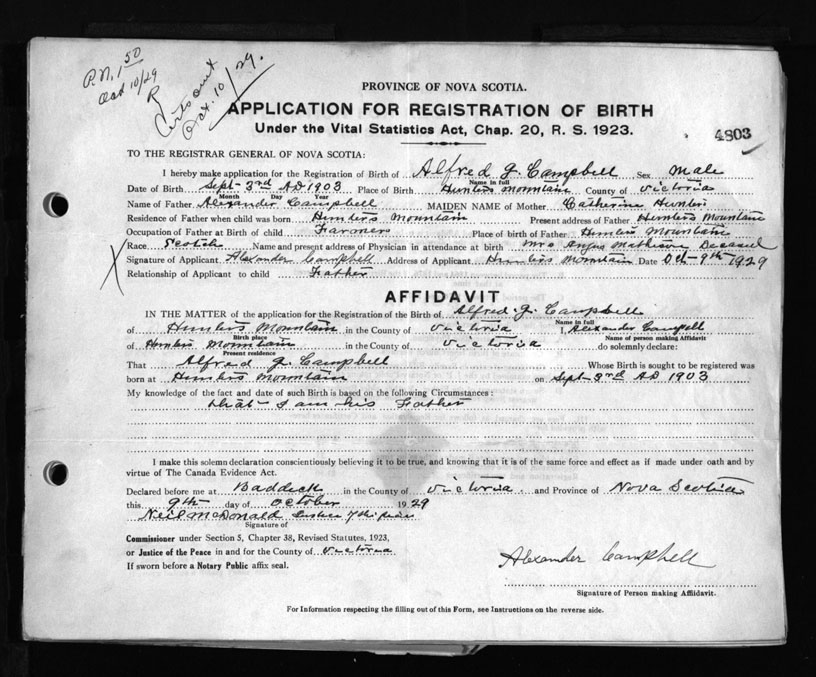 P.N. 1.50
Oct 10/29
R
Certs out
Oct. 10/29.
PROVINCE OF NOVA SCOTIA.
APPLICATION FOR REGISTRATION OF BIRTH
Under the Vital Statistics Act, Chap. 20, R. S. 1923.
4803
TO THE REGISTRAR GENERAL OF NOVA SCOTIA:
I hereby make application for the Registration of Birth of Alfred J. Campbell Sex Male
Name in full
Date of Birth Sept 3rd AD 1903 Place of Birth Hunters Mountain County of Victoria
Month Day Year
Name of Father Alexander Campbell MAIDEN NAME of Mother Catherine Hunter
Residence of Father when child was born Hunters Mountain Present address of Father Hunters Mountain
Occupation of Father at Birth of child Farmers Place of birth of Father Hunters Mountain
Race Scotch Name and present address of Physician in attendance at birth Mrs Angus Matheson Deceased
Signature of Applicant Alexander Campbell Address of Applicant Hunters Mountain Date Oct 9th 1929
X
Relationship of Applicant to child Father
AFFIDAVIT
IN THE MATTER of the application for the Registration of the Birth of Alfred J. Campbell
Name in full
of Hunters Mountain in the County of Victoria I, Alexander Campbell
Birth place Name of person making Affidavit
of Hunters Mountain in the County of Victoria do solemnly declare:
Present residence
That Alfred J. Campbell Whose Birth is sought to be registered was
born at Hunters Mountain on Sept 3rd AD 1903
My knowledge of the fact and date of such Birth is based on the following Circumstances:
that I am his Father
I make this solemn declaration conscientiously believing it to be true, and knowing that it is of the same force and effect as if made under oath and by
virtue of The Canada Evidence Act.
Declared before me at Baddeck in the County of Victoria and Province of Nova Scotia
this 9th day of October 1929
Neil McDonald Justice of the Peace
Signature of
Commissioner under Section 5, Chapter 38, Revised Statutes, 1923,
or Justice of the Peace in and for the County of Victoria.
If sworn before a Notary Public affix seal.
Alexander Campbell
Signature of Person making Affidavit.
For Information respecting the filling out of this Form, see Instructions on the reverse side.